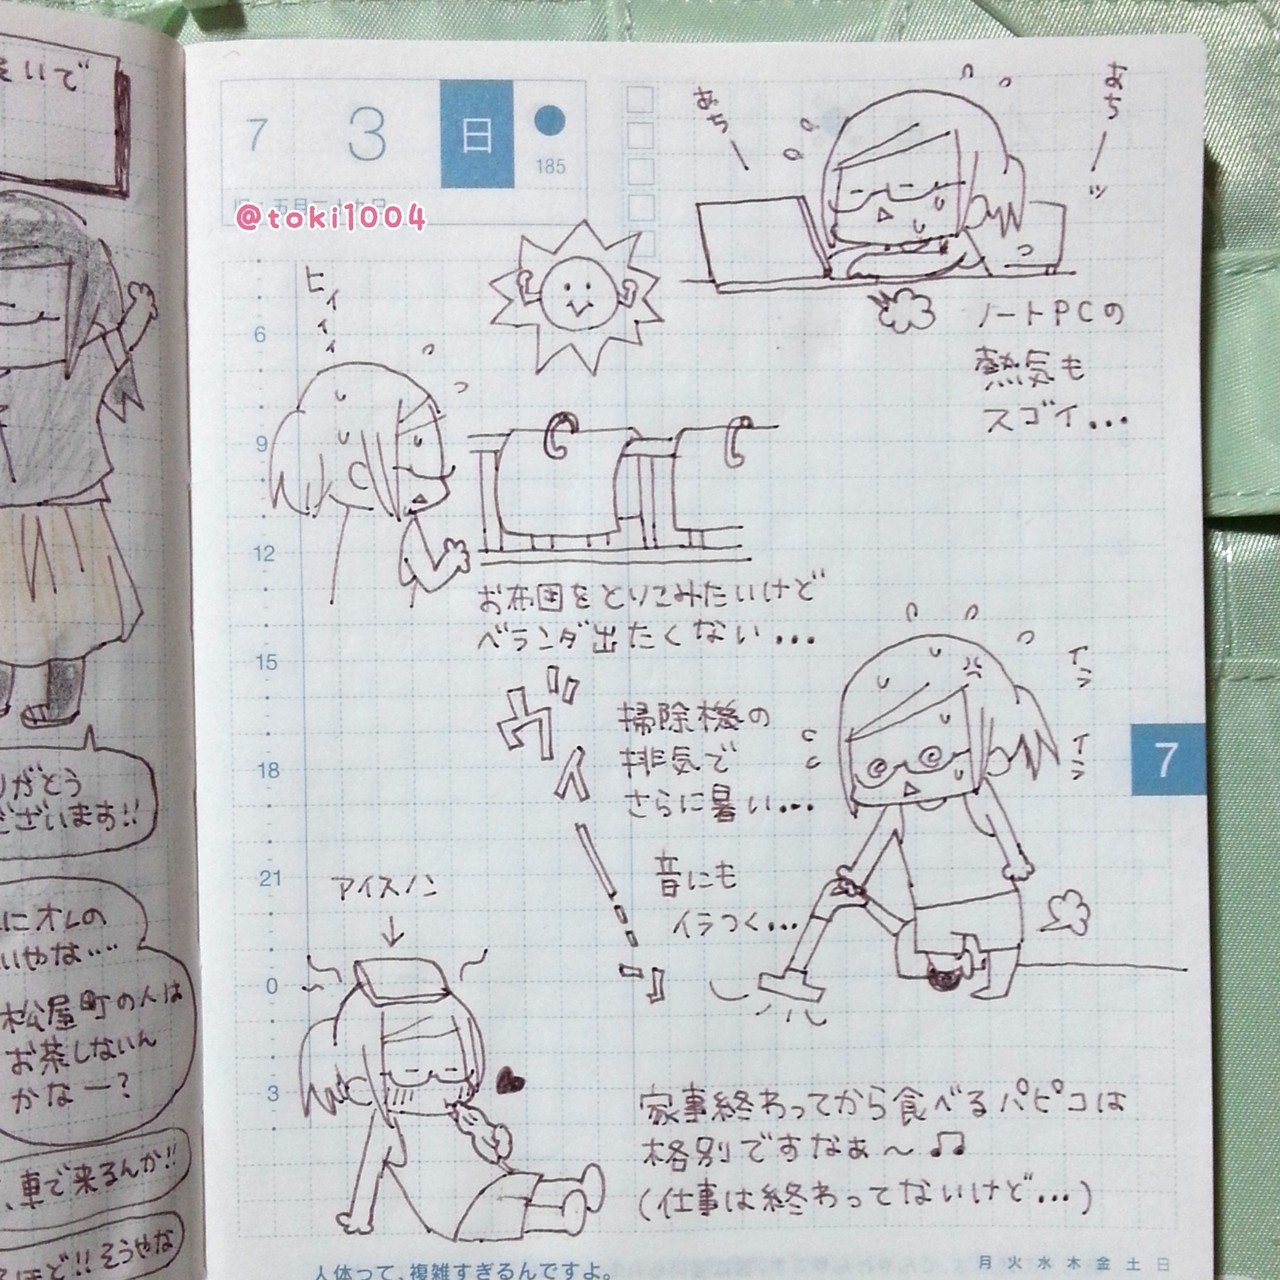 7 3 日
185
@toki1004
あちー
あちーッ
ノートPCの
熱気も
スゴイ...
ヒィィィ
お布団をとりこみたいけど
ベランダ出たくない...
掃除機の
排気で
さらに暑い...
音にも
イラつく...
イラ
イラ
ウィーン
アイスノン
家事終わってから食べるパピコは
格別ですなぁ〜♫
(仕事は終わってないけど...)
6
9
12
15
18
21
0
3
7
人体って、複雑すぎるんですよ。
月 火 水 木 金 土 日
いで
りがとう
ございます!!
にオレの
いやな…
松屋町の人は
お茶しないん
かなー?
、車で来るんか!!
ほど!!そうやな